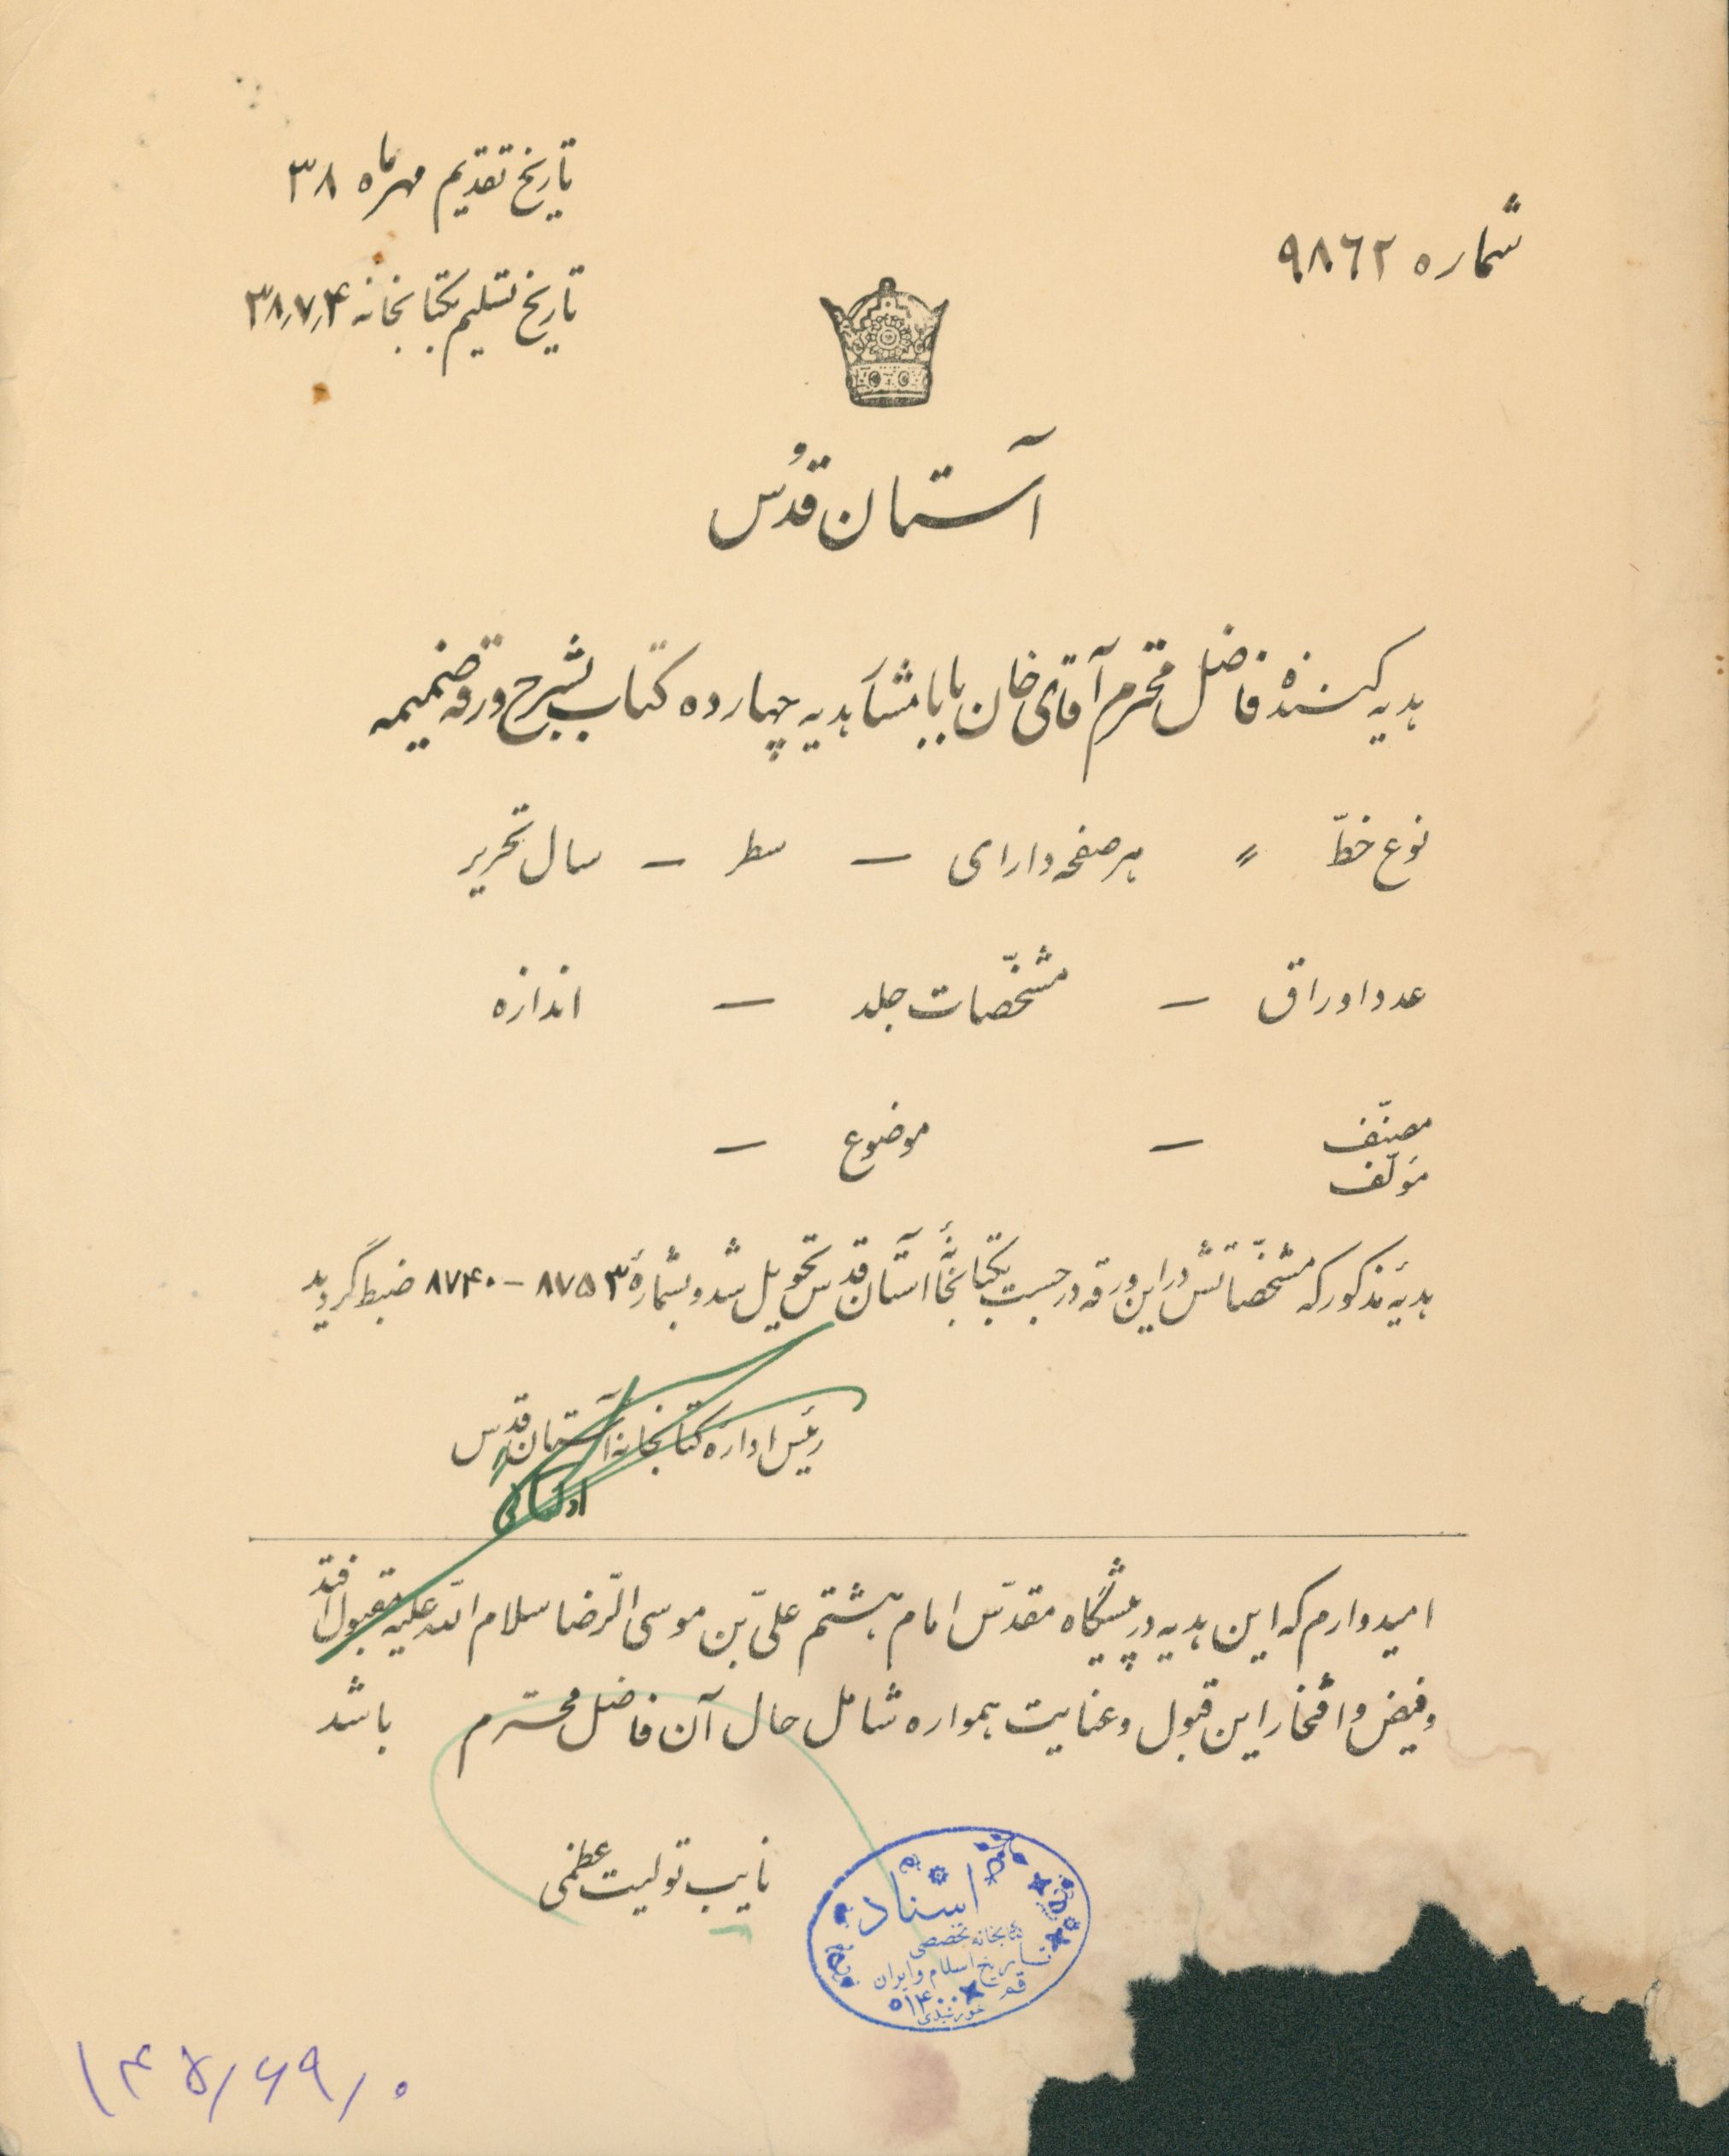 شماره ۹۸٦۲
تاریخ تقدیم مهرماه ۳۸
تاریخ تسلیم بکتابخانه ۳۸٫۷٫۴
آستان قدُس
هدیه کنندهٔ فاضل محترم آقای خان بابا مشار هدیه چهارده کتاب بشرح ورقه ضمیمه
نوع خطّ " هر صفحه دارای – سطر – سال تحریر
عدد اوراق – مشخّصات جلد – اندازه
مصنّف – موضوع –
مؤلّف
هدیهٔ مذکور که مشخّصاتش در این ورقه درجست بکتابخانهٔ آستان قدس تحویل شد و بشمارهٔ ۸۷۵۳ – ۸۷۴۰ ضبط گردید
رئیس اداره کتابخانه آستان قدس
امیدوارم که این هدیه در پیشگاه مقدّس امام هشتم علیّ بن موسی الرّضا سلام الله علیه مقبول افتد
و فیض و افتخار این قبول و عنایت همواره شامل حال آن فاضل محترم باشد
نایب تولیت عظمی
اسناد
کتابخانه تخصصی
تاریخ اسلام و ایران
قم
۱۴۵/۶۹/۰